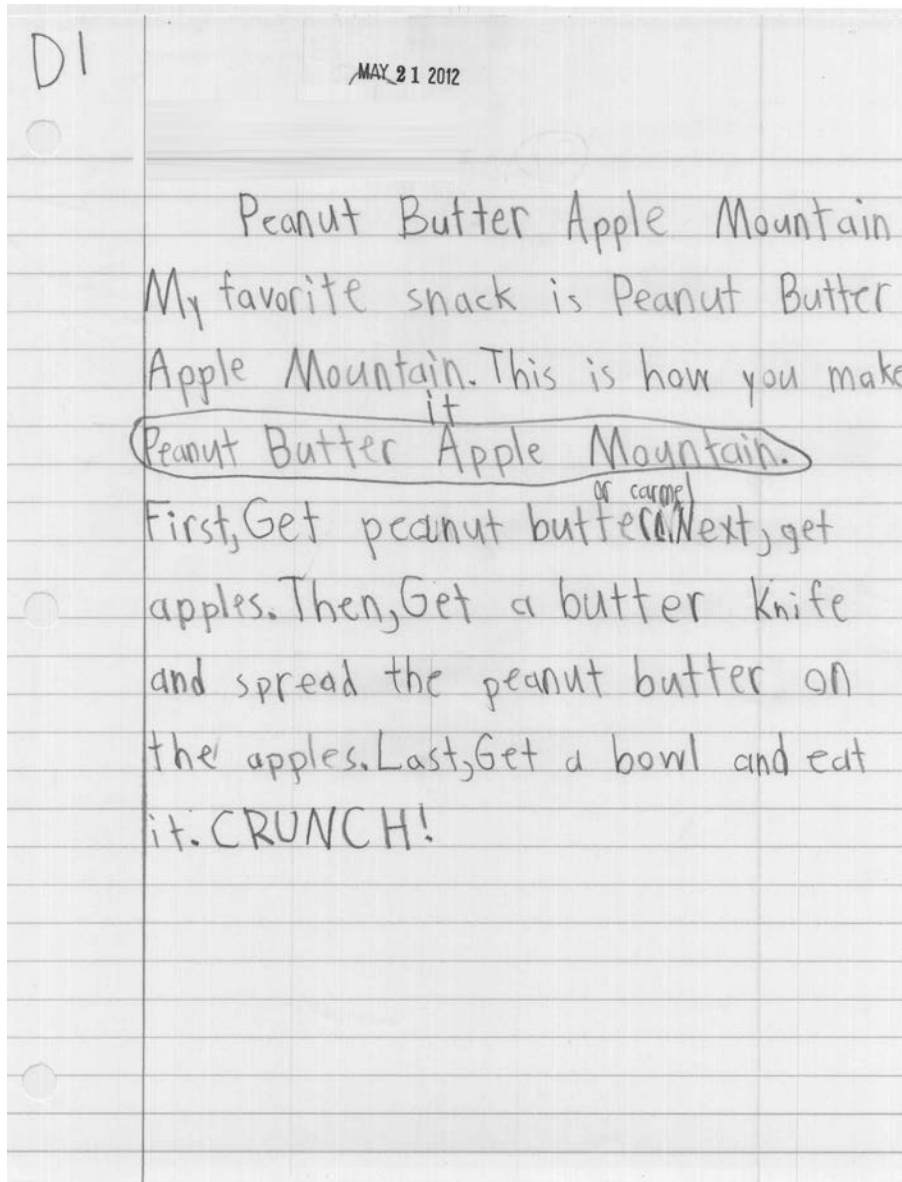 D1
MAY 21 2012
Peanut Butter Apple Mountain
My favorite snack is Peanut Butter
Apple Mountain. This is how you make
it
Peanut Butter Apple Mountain.
or carmel
First, Get peanut butter. Next, get
apples. Then, Get a butter knife
and spread the peanut butter on
the apples. Last, Get a bowl and eat
it. CRUNCH!